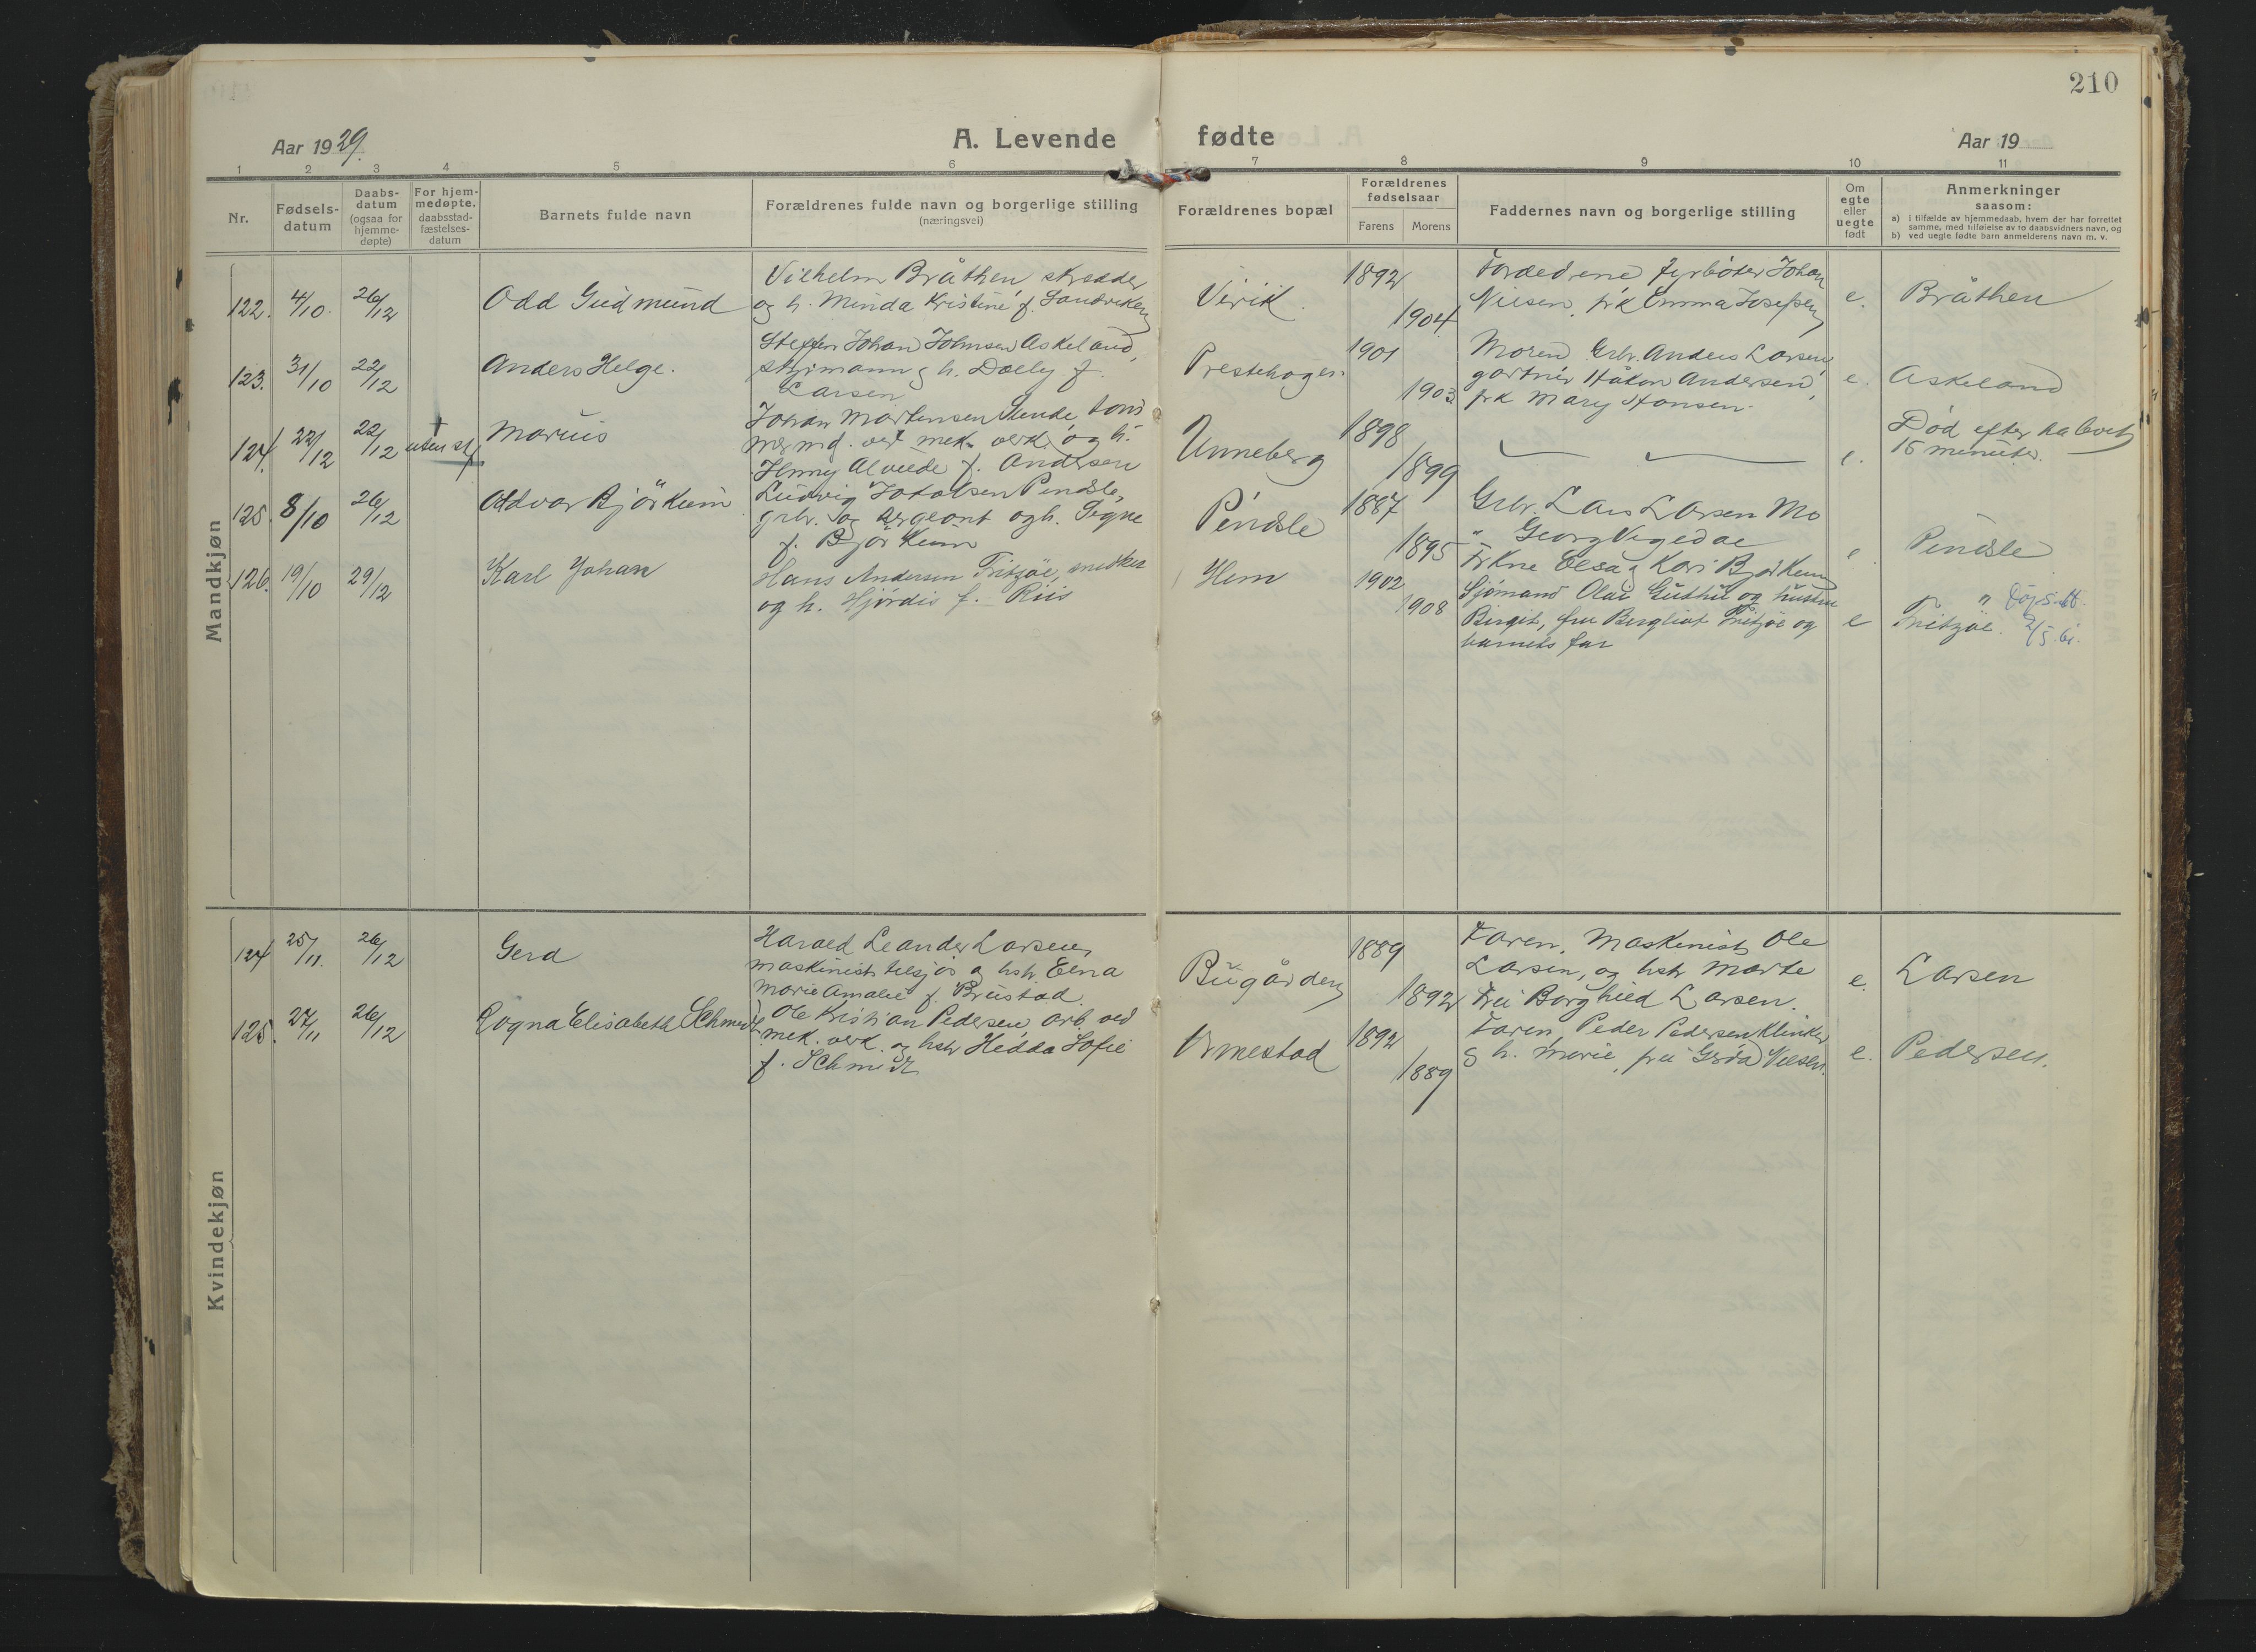 210
Aar 1929.
A. Levende fødte
Aar 19
1 2 3 4 5 6 7 8 9 10 11
Nr.
Fødsels-
datum
Daabs-
datum
(ogsaa for
hjemme-
døpte)
For hjem-
medøpte.
daabsstad-
fæstelses-
datum
Barnets fulde navn
Forældrenes fulde navn og borgerlige stilling
(næringsvei)
Forældrenes bopæl
Forældrenes
fødselsaar
Farens Morens
Faddernes navn og borgerlige stilling
Om
egte
eller
uegte
født
Anmerkninger
saasom:
a) i tilfælde av hjemmedaab, hvem der har forrettet
samme, med tilføielse av to daabsvidners navn, og
b) ved uegte fødte barn anmelderens navn m. v.
Mandkjøn
122. 4/10. 26/12
Odd Gudmund
Vilhelm Bråthen, skrædder
og h. Minda Kristine f.
Virik.
1892
1904
Forældrene, fyrbøter Johan
Nilsen, frk Emma Josefsen
e.
Bråthen
123. 31/10 22/12
Anders Helge.
Steffen Johan Johnsen Askeland,
styrmann og h. Dolly f.
Larsen
Prestehagen.
1901
1903.
Moren Grbr. Anders Larsen,
gartner Håkon Andersen,
frk Mary Hansen.
e.
Askeland
124. 22/12 22/12 uten st. †
Marius
Johan Martensen
ved mek. verk. og h.
Alvilde f. Andersen
Unneberg
1898
1899
e.
Død efter ha levet
15 minuter.
125. 8/10 26/12
Oddvar Bjørkum
Ludvig Pindsle,
grbr. og sergeant og h. Signe
f. Bjørkum
Pindsle
1887
1895
Grbr. Lars Larsen Mo
" Georg
Frkne Elsa og Kari Bjørkum
e
Pindsle
126. 19/10 29/12
Karl Johan
Hans Andersen Tritzøe,
og h. Hjørdis f. Riis
Hem
1902
1908
Sjømand Olav Guthu og hustru
Birgit, fru Bergliot Tritzøe og
barnets far
e
Tritzøe.
Kvindekjøn
124 25/11. 26/12
Gerd
Harald Leander Larsen,
maskinist tilsjøs og hstr Elna
Marie Amalie f. Brustad.
Bugården
1889
1892
Faren, Maskinist Ole
Larsen, og hstr Marte
Fru Borghild Larsen.
e.
Larsen
125. 27/11 26/12
Ragna Elisabeth Schmidt
Ole Kristian Pedersen, arb. ved
mek. verk. og hstr Hedda Sofie
f. Schmidt
Ormestad
1892
1889
Faren, Peder Pedersen Klinker
& h. Marie, fru Gerda Nilsen.
e.
Pedersen.